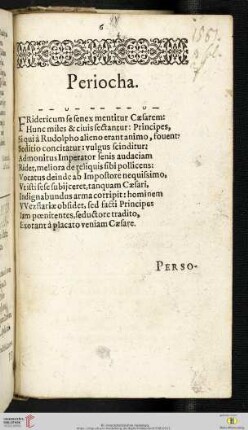 6
Periocha.
FRidericum se senex mentitur Cæsarem:
Hunc miles & ciuis sectantur: Principes,
Siqui á Rudolpho alieno erant animo, fouent:
Seditio concitatur: vulgus scinditur:
Admonitus Imperator senis audaciam
Ridet, meliora de reliquis sibi pollicens:
Vocatus deinde ab Impostore nequissimo,
Vt isti sese subijceret, tanquam Cæsari,
Indignabundus arma corripit: hominem
VVetzflariæ obsidet, sed facti Principes
Iam pœnitentes, seductore tradito,
Exorant á placato veniam Cæsare.
PERSO-